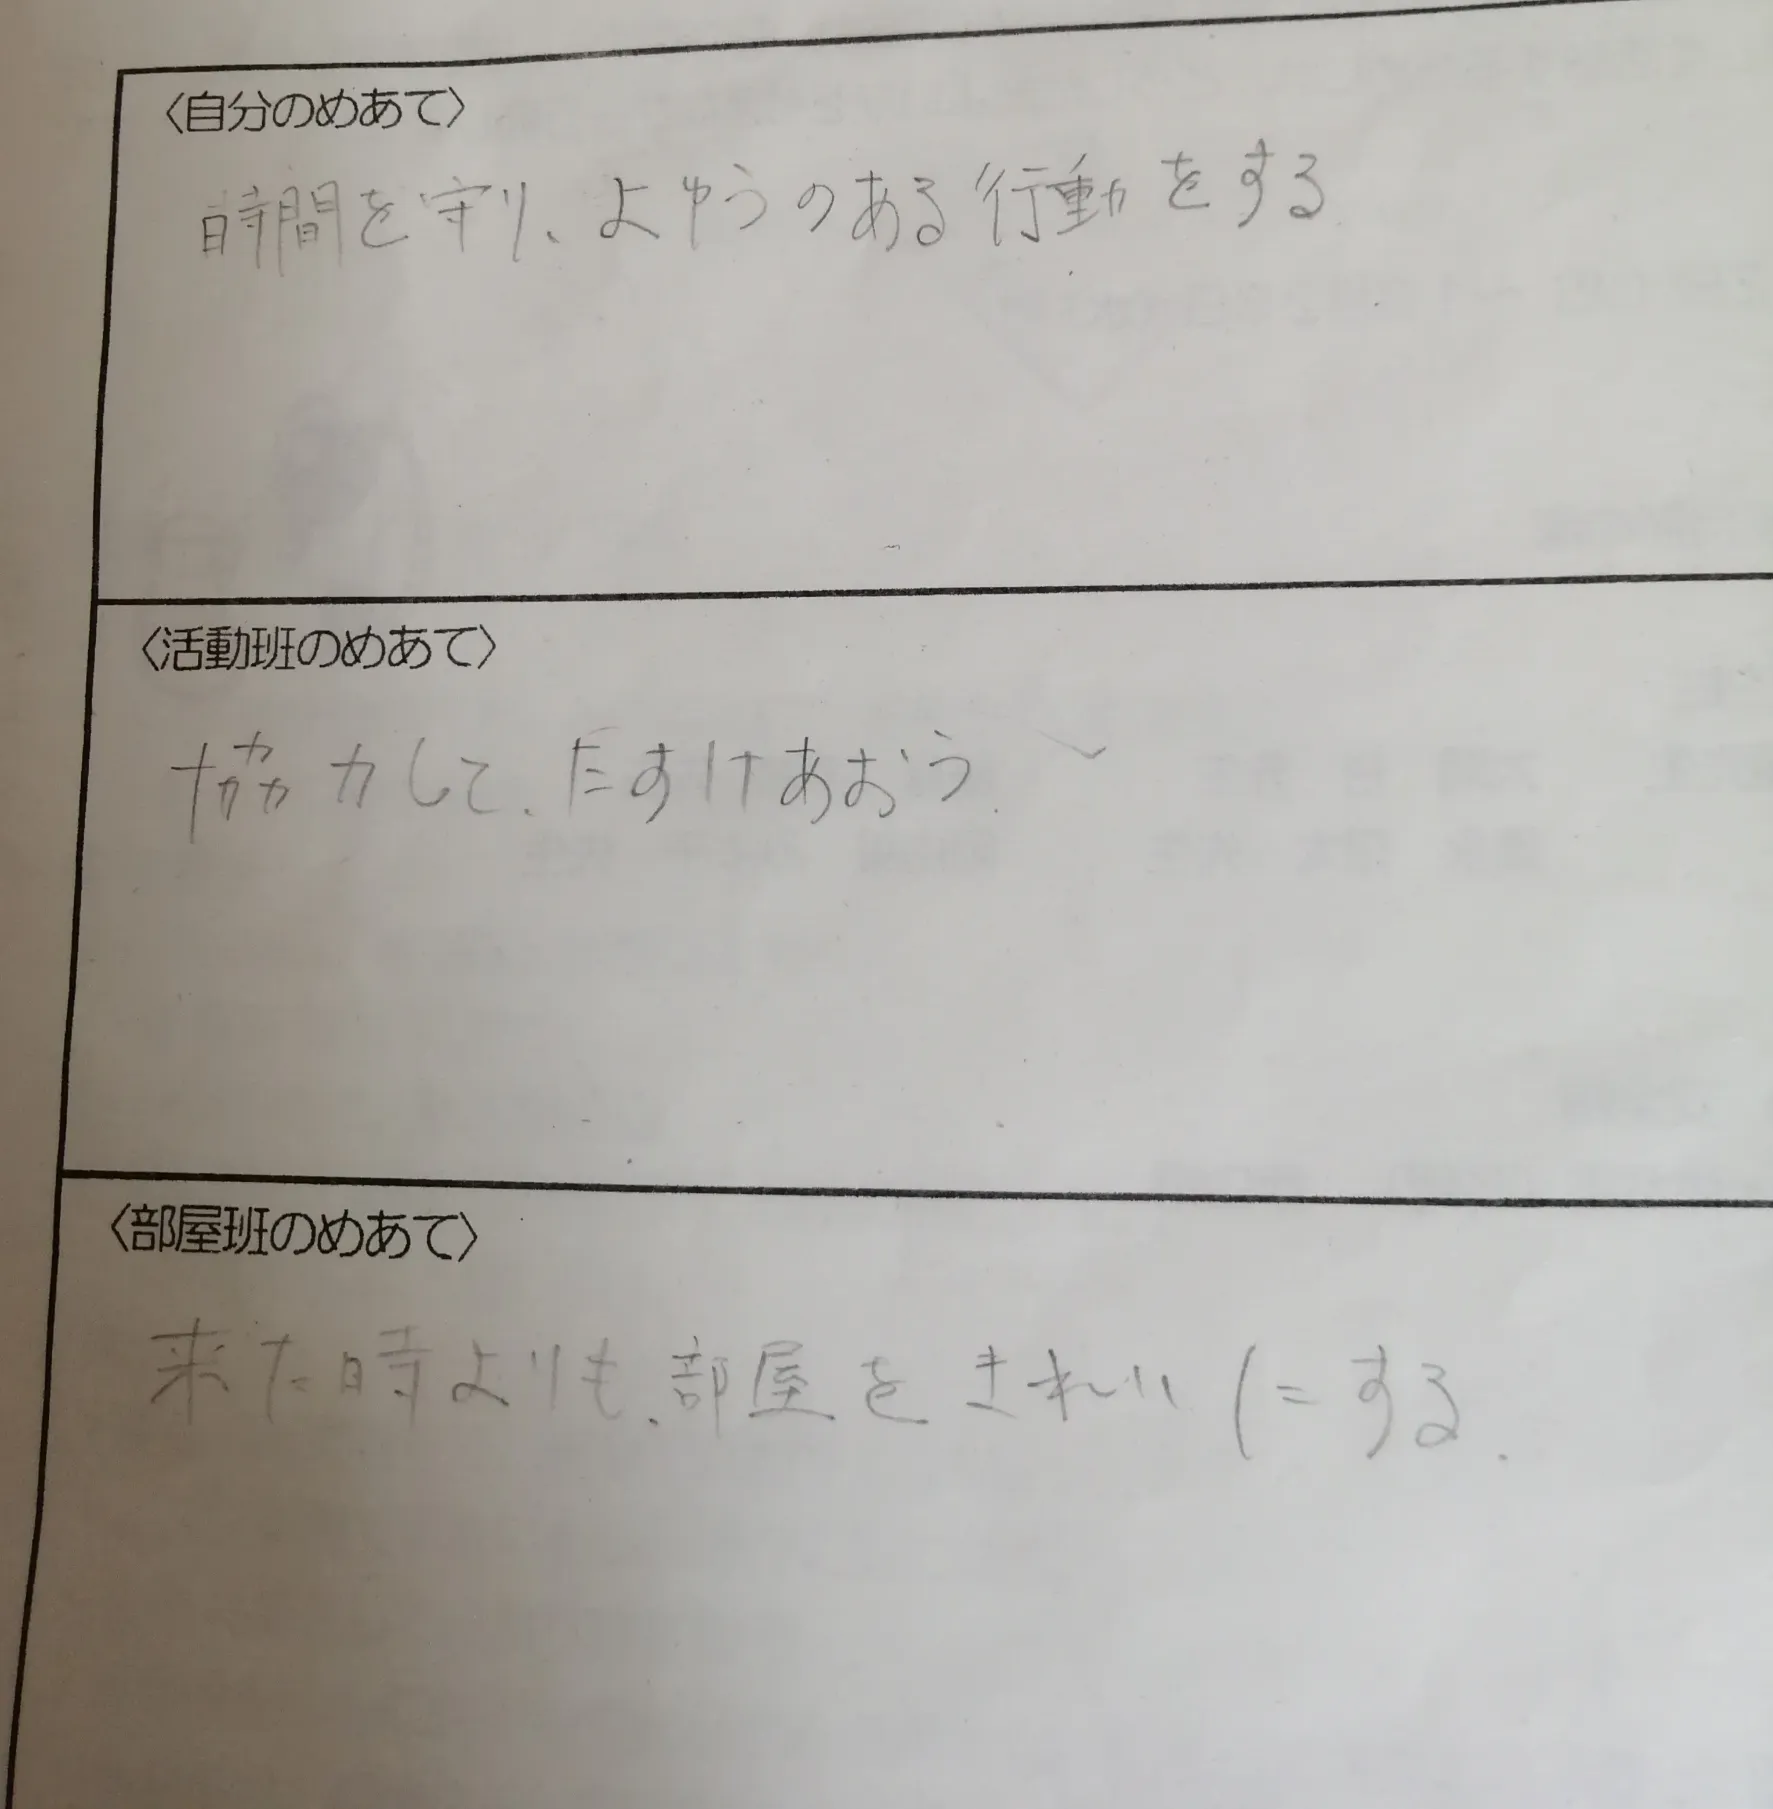 〈自分のめあて〉
時間を守り、よゆうのある行動をする
〈活動班のめあて〉
協力して、たすけあおう
〈部屋班のめあて〉
来た時よりも、部屋をきれいにする。